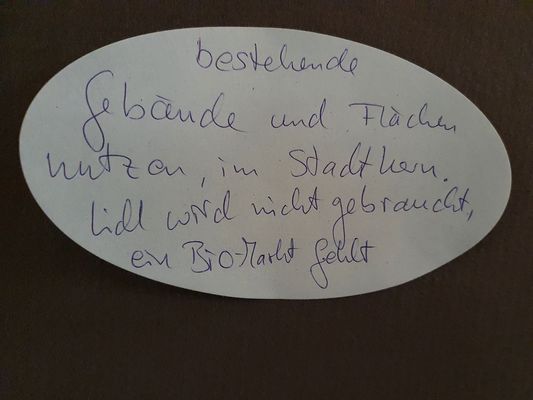 bestehende
Gebäude und Flächen
nutzen, im Stadtkern.
Lidl wird nicht gebraucht,
ein Bio-Markt fehlt